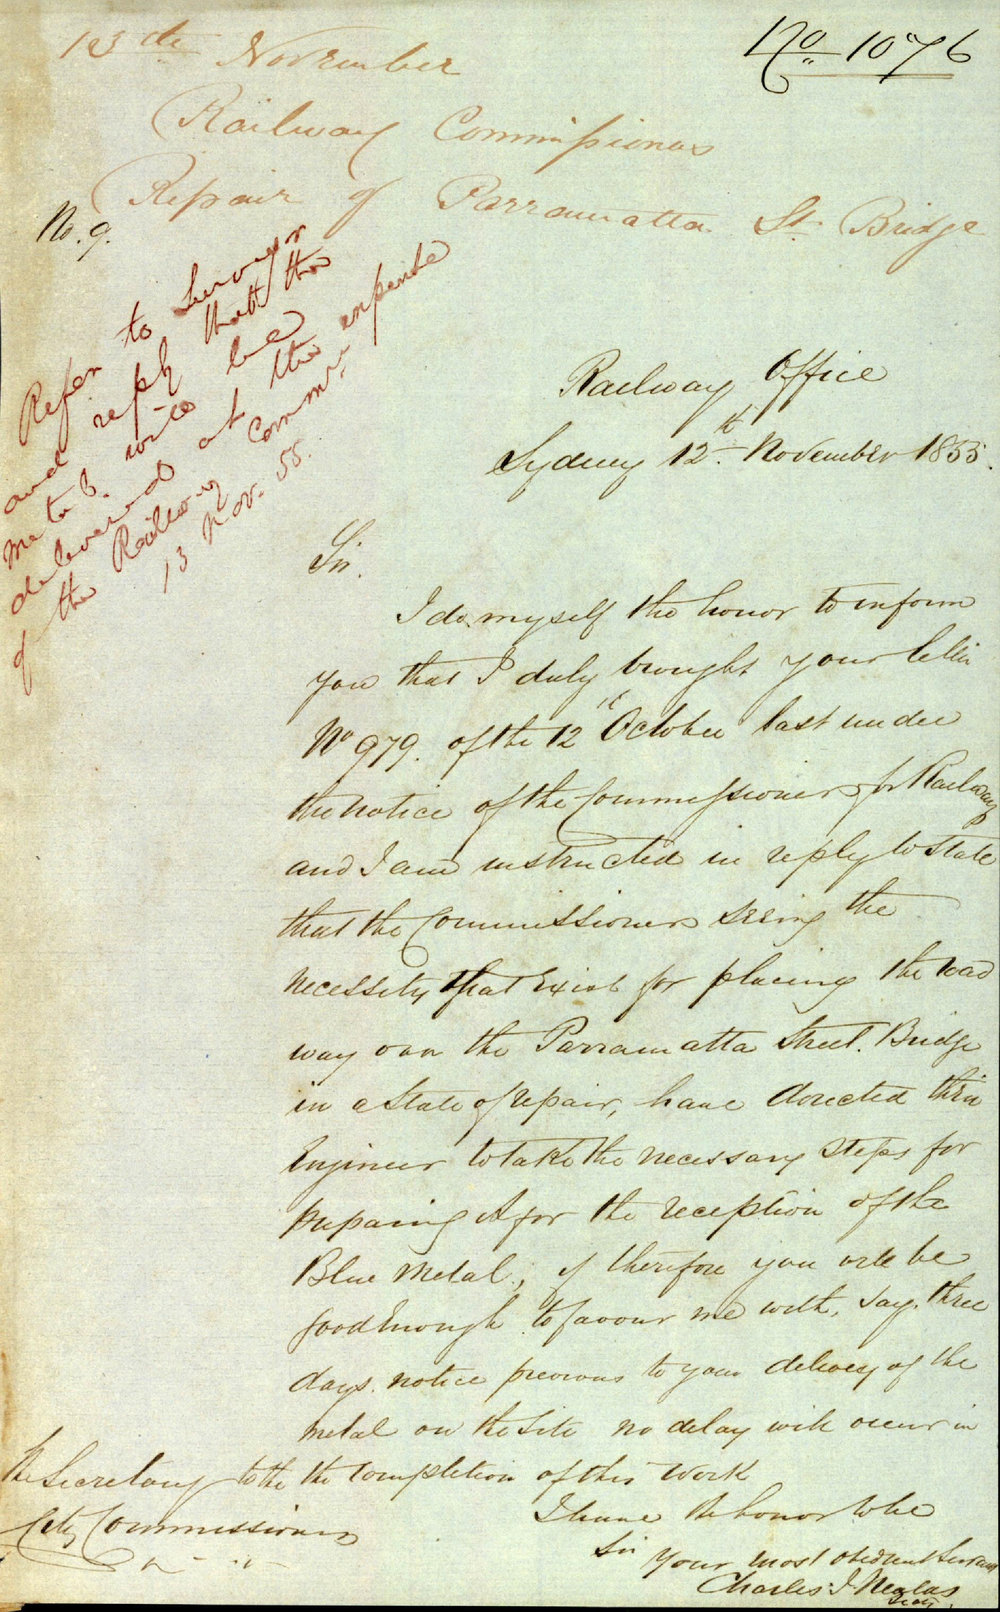 No 1076
13th November
Railway Commissioners
Repair of Parramatta St Bridge
No. 9.
Refer to Surveyor
and reply that the
metal will be
delivered at the expense
of the Railway Commrs.
13 Nov. 55.
Railway Office
Sydney 12th November 1855.
Sir.
I do myself the honor to inform
you that I duly brought your letter
No 979. of the 12th October last under
the notice of the Commissioners for Railways
and I am instructed in reply to state
that the Commissioners seeing the
necessity that exist for placing the road
way over the Parramatta Street. Bridge
in a state of repair, have directed their
Engineer to take the necessary steps for
preparing it for the reception of the
Blue Metal; if therefore you will be
good enough to favour me with, say, three
days. notice previous to your delivery of the
metal on the site no delay will occur in
the completion of this work
I have the honor to be
Sir
Your most obedient Servant
Charles J
Secty.
The Secretary to the
City Commissioners